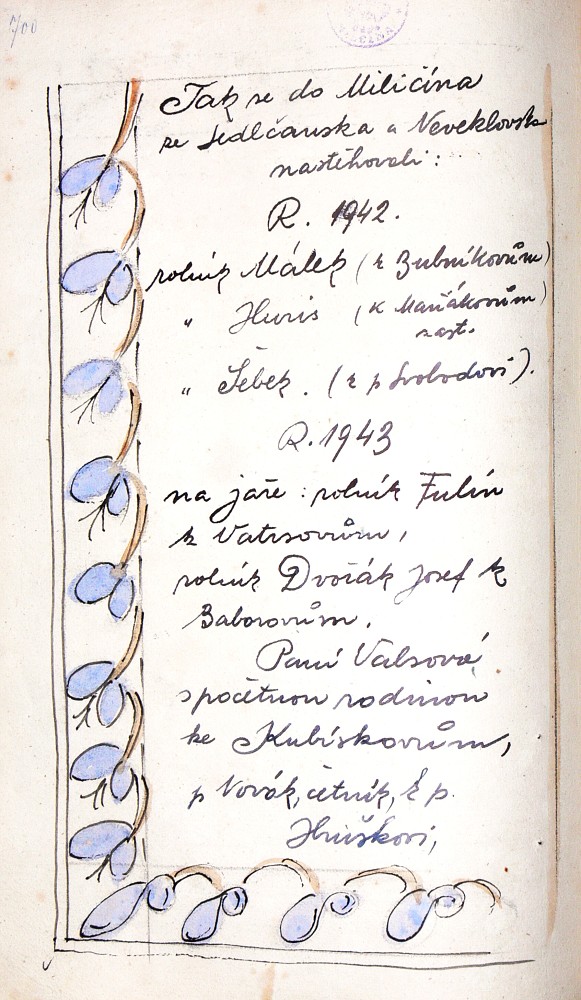 700
Tak se do Miličína
ze Sedlčanska a Neveklovska
nastěhovali:
R. 1942.
rolník Málek (k Zubníkovům)
„ Huris (k Maňákovům)
zast.
„ Šebek. (k p Svobodovi).
R. 1943
na jaře: rolník Fulín
k Vatrsovům,
rolník Dvořák Josef k
Baborovům.
Paní Valsová
s početnou rodinou
ke Kubiskovům,
p Novák, četník, k p.
Hruškovi,